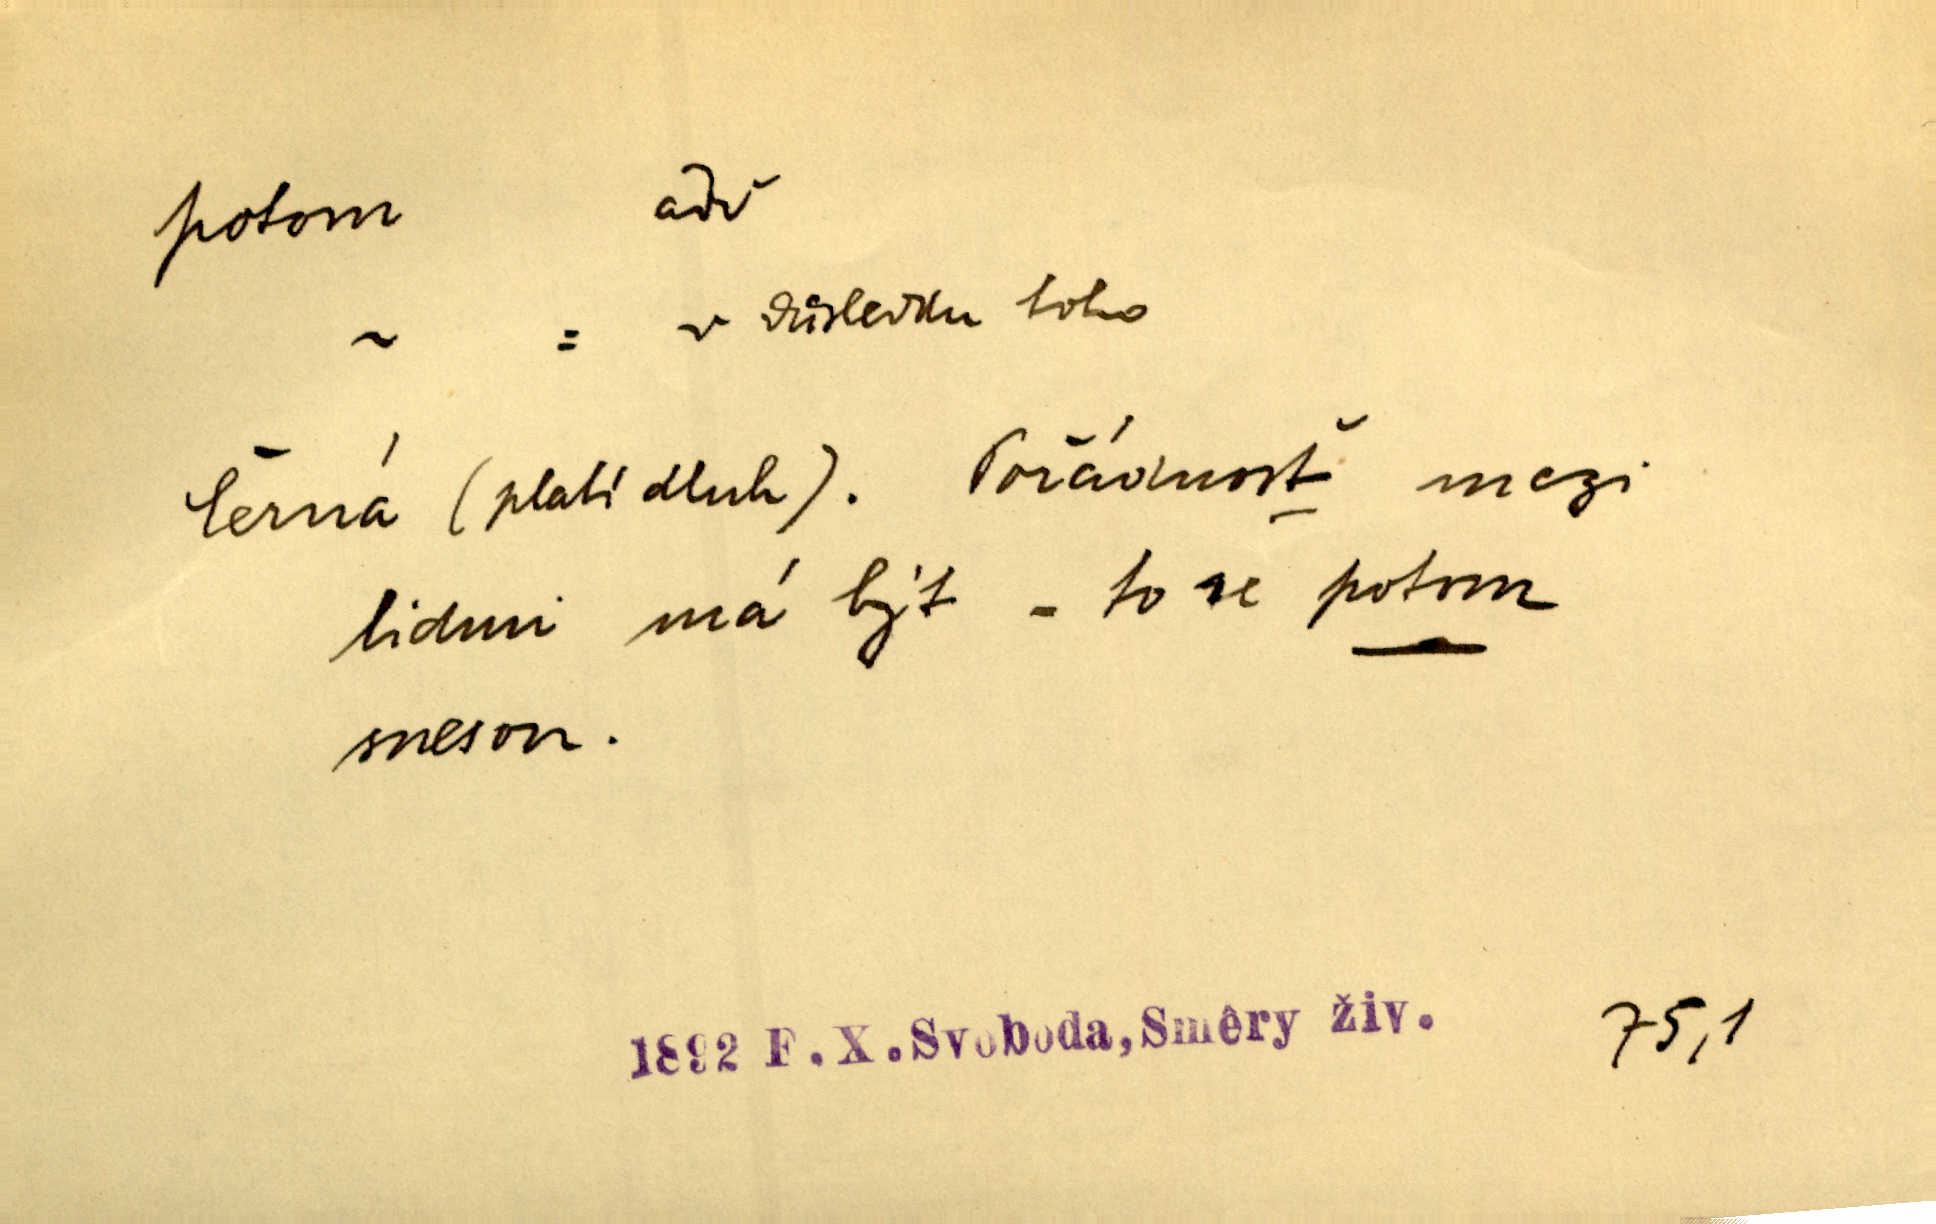 potom adv
~ = v důsledku toho
Černá (platí dluh). Pořádnosť mezi
lidmi má být - to se potom
snesou.
1892 F.X.Svoboda,Směry živ. 75,1